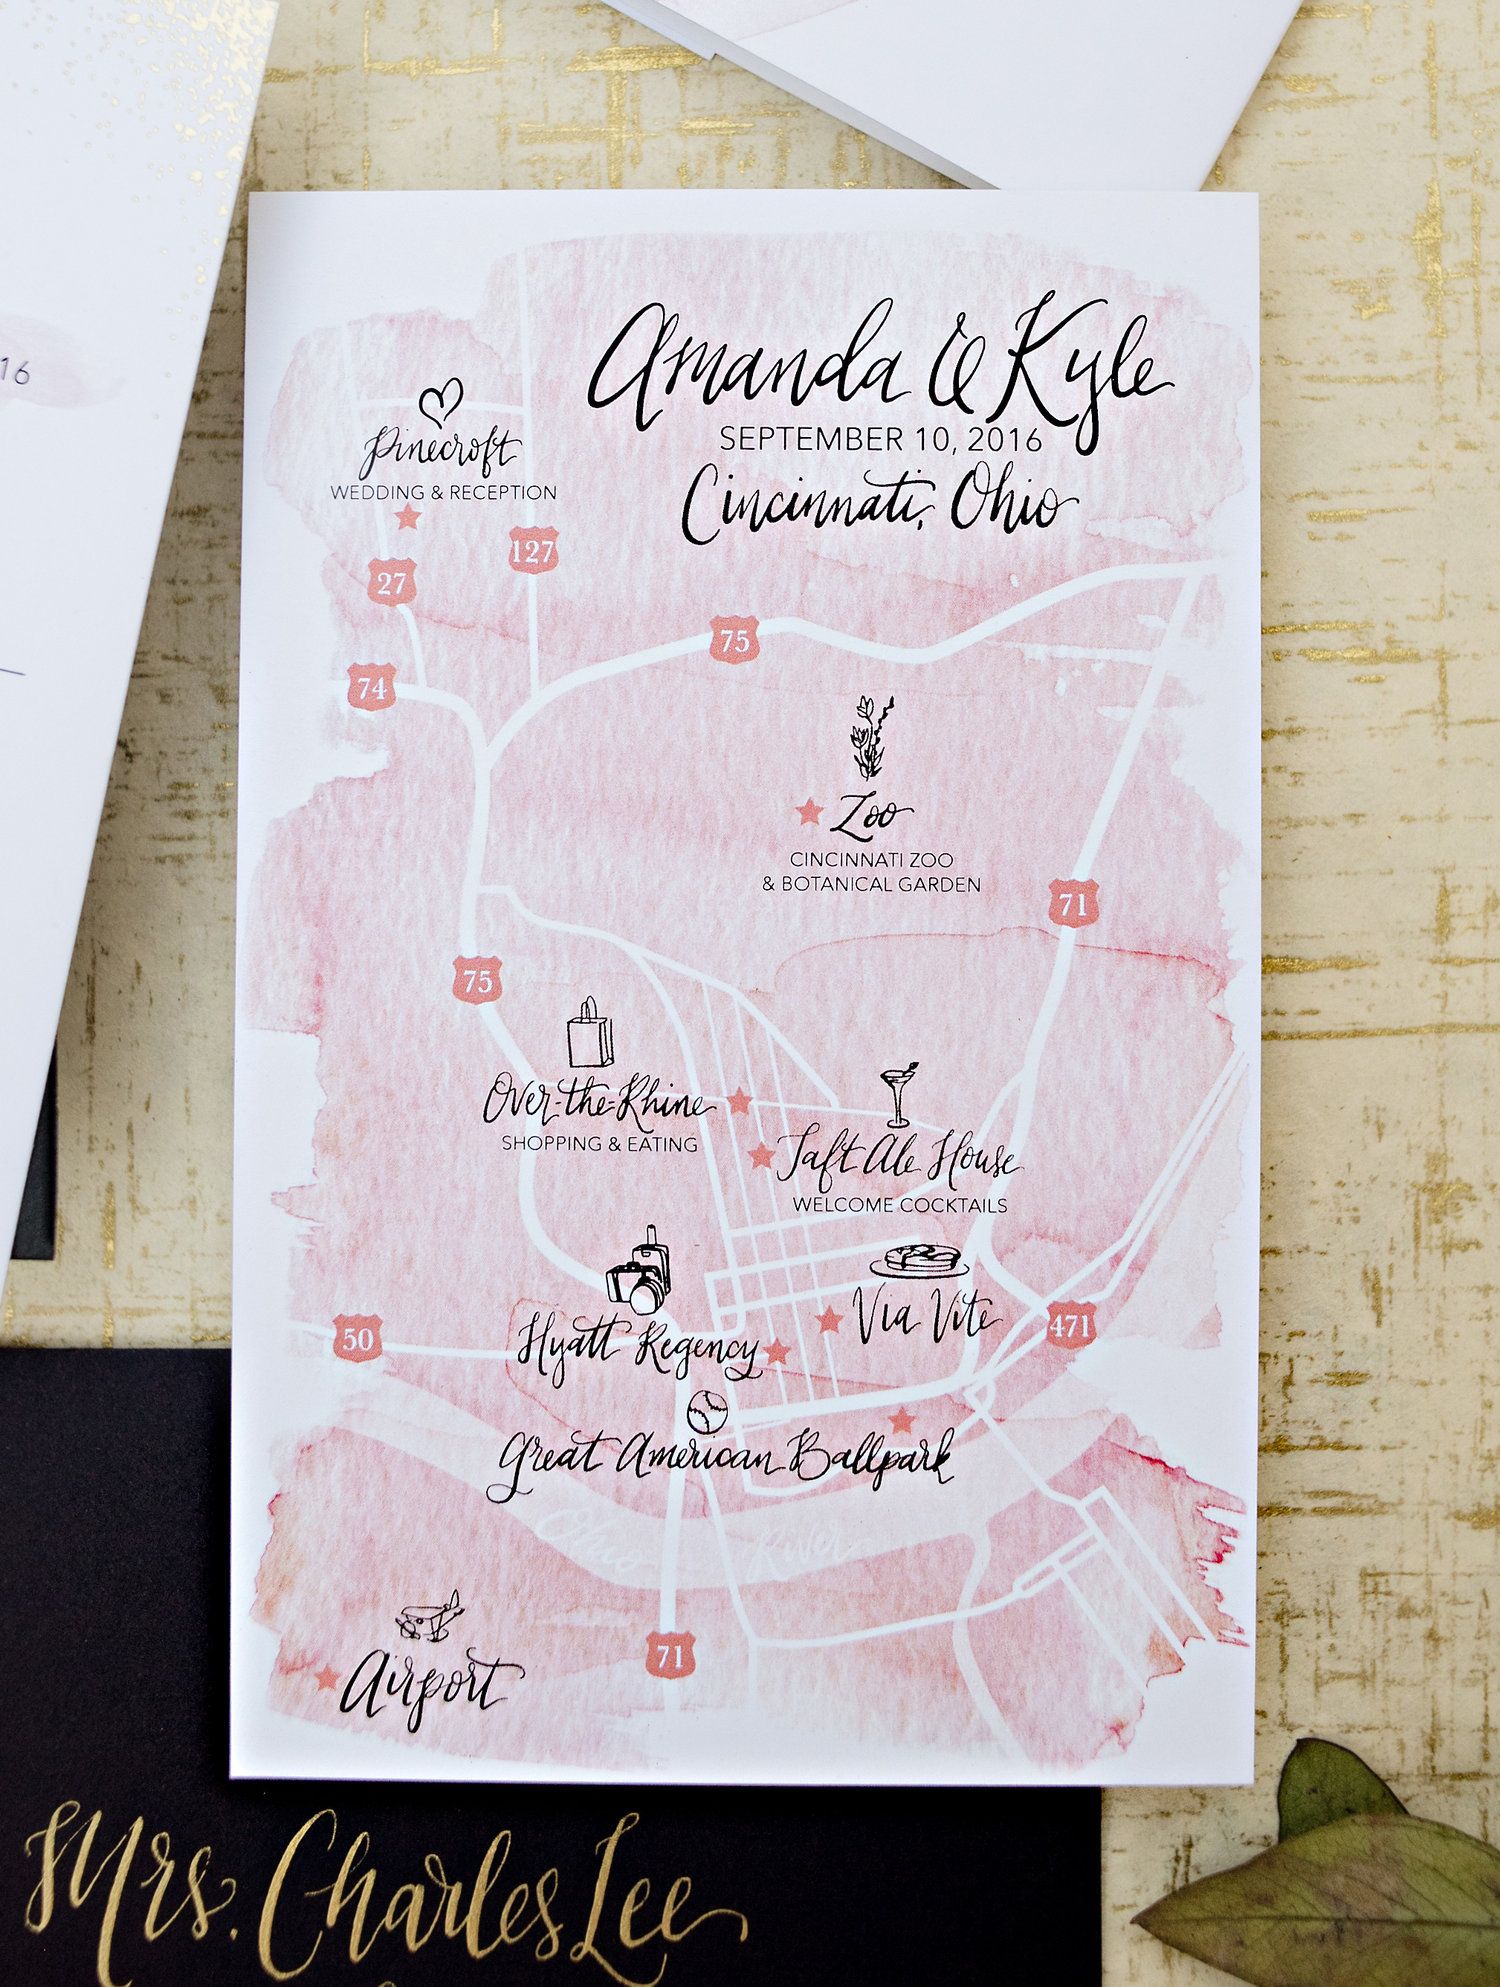 16
Amanda & Kyle
SEPTEMBER 10, 2016
Cincinnati, Ohio
Pinecroft
WEDDING & RECEPTION
127
27
75
74
Zoo
CINCINNATI ZOO
& BOTANICAL GARDEN
71
75
Over-the-Rhine
SHOPPING & EATING
Taft Ale House
WELCOME COCKTAILS
Via Vite
Hyatt Regency
50
471
Great American Ballpark
Ohio River
71
Airport
Mrs. Charles Lee